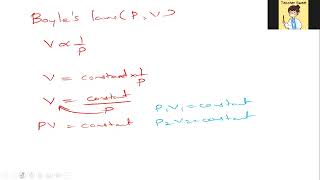 Boyle's law (P, V)
V ∝ 1/P
V = constant x 1/P
V = constant/P
PV = constant
P₁V₁ = constant
P₂V₂ = constant
Teacher Sweet